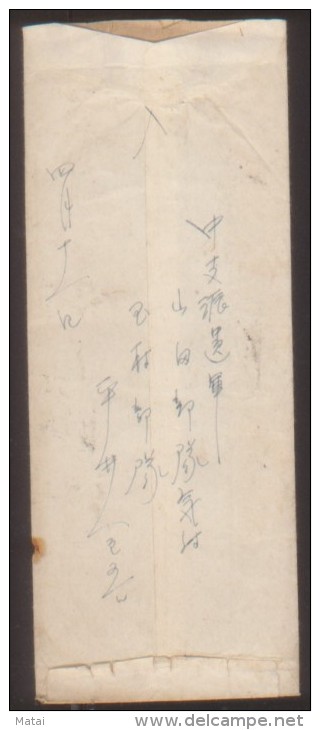 中支派遣軍
山田部隊気付
玉村部隊
平井
四月十一日
Matai
www.delcampe.net